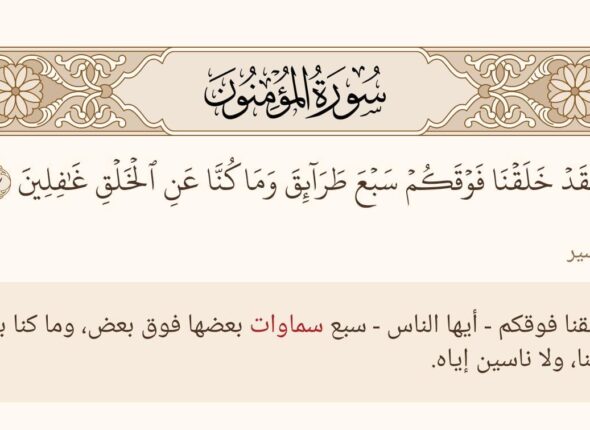 سُورَةُ المُؤْمِنُونَ
خَلَقْنَا فَوْقَكُمْ سَبْعَ طَرَآئِقَ وَمَا كُنَّا عَنِ ٱلْخَلْقِ غَٰفِلِينَ
فوقكم - أيها الناس - سبع سماوات بعضها فوق بعض، وما كنا
ولا ناسين إياه.